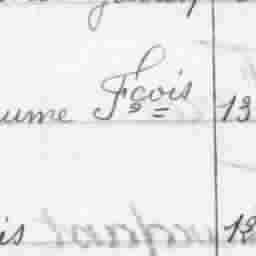 ume Fçois 13
is 12